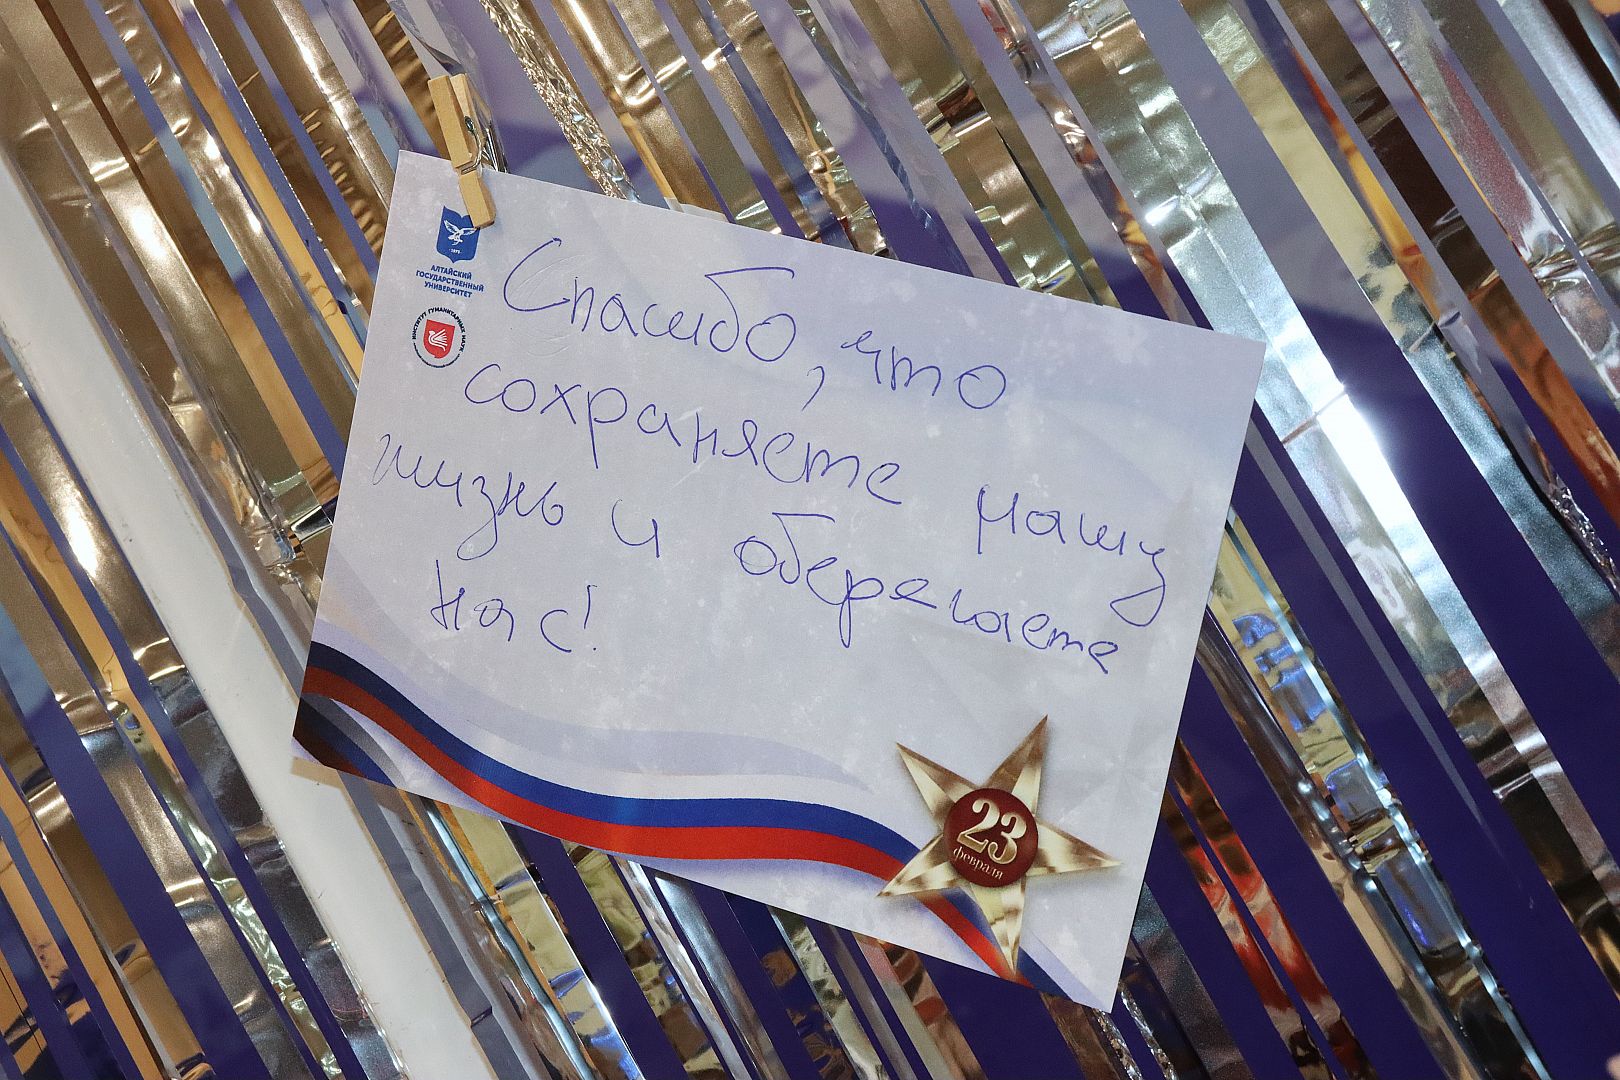 1973
АЛТАЙСКИЙ
ГОСУДАРСТВЕННЫЙ
УНИВЕРСИТЕТ
ИНСТИТУТ ГУМАНИТАРНЫХ НАУК
Спасибо, что
сохраняете нашу
жизнь и оберегаете
нас!
23
февраля